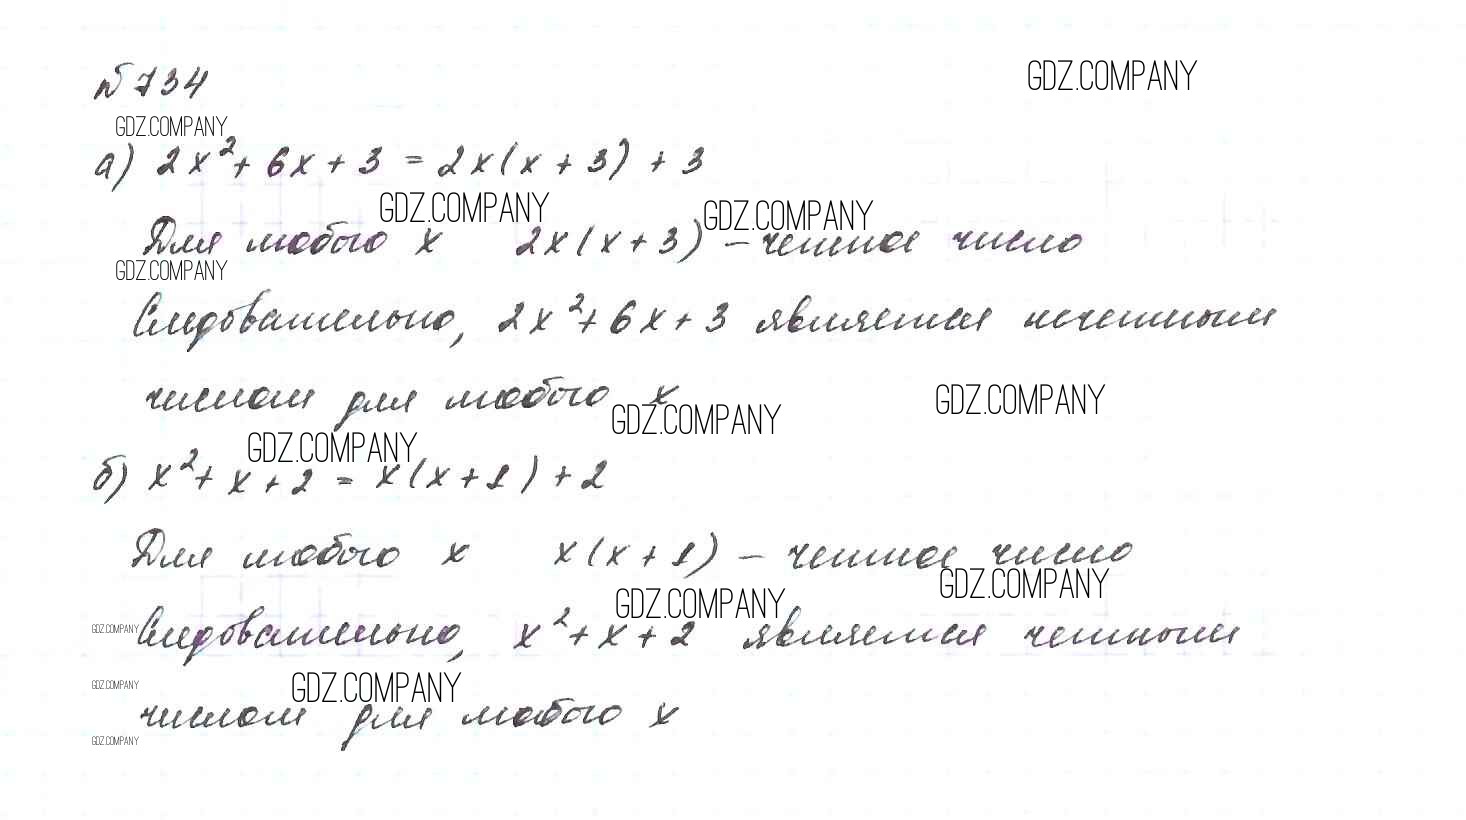 № 734
GDZ.COMPANY
GDZ.COMPANY
а) 2x² + 6x + 3 = 2x(x + 3) + 3
GDZ.COMPANY
GDZ.COMPANY
Для любого x 2x(x + 3) – четное число
GDZ.COMPANY
Следовательно, 2x² + 6x + 3 является нечетным
числом для любого x
GDZ.COMPANY
GDZ.COMPANY
GDZ.COMPANY
б) x² + x + 2 = x(x + 1) + 2
Для любого x x(x + 1) – четное число
GDZ.COMPANY
GDZ.COMPANY
GDZ.COMPANY
Следовательно, x² + x + 2 является четным
GDZ.COMPANY
GDZ.COMPANY
числом для любого x
GDZ.COMPANY